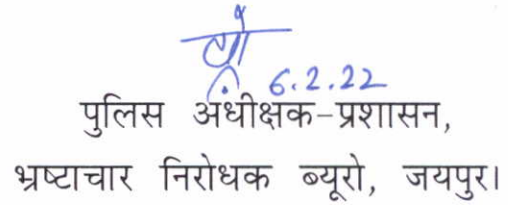 6.2.22
पुलिस अधीक्षक-प्रशासन,
भ्रष्टाचार निरोधक ब्यूरो, जयपुर।